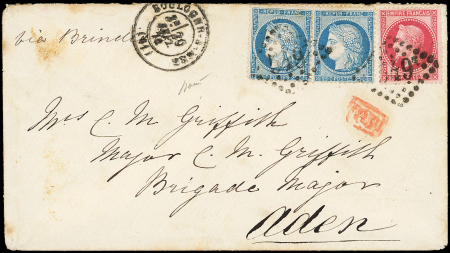 via Brindisi
BOULOGNE-S-MER
REPUB. FRANC.
REPUB. FRANC.
EMPIRE FRANÇAIS
Mrs C. M. Griffith
Major C. M. Griffith
Brigade Major
Aden